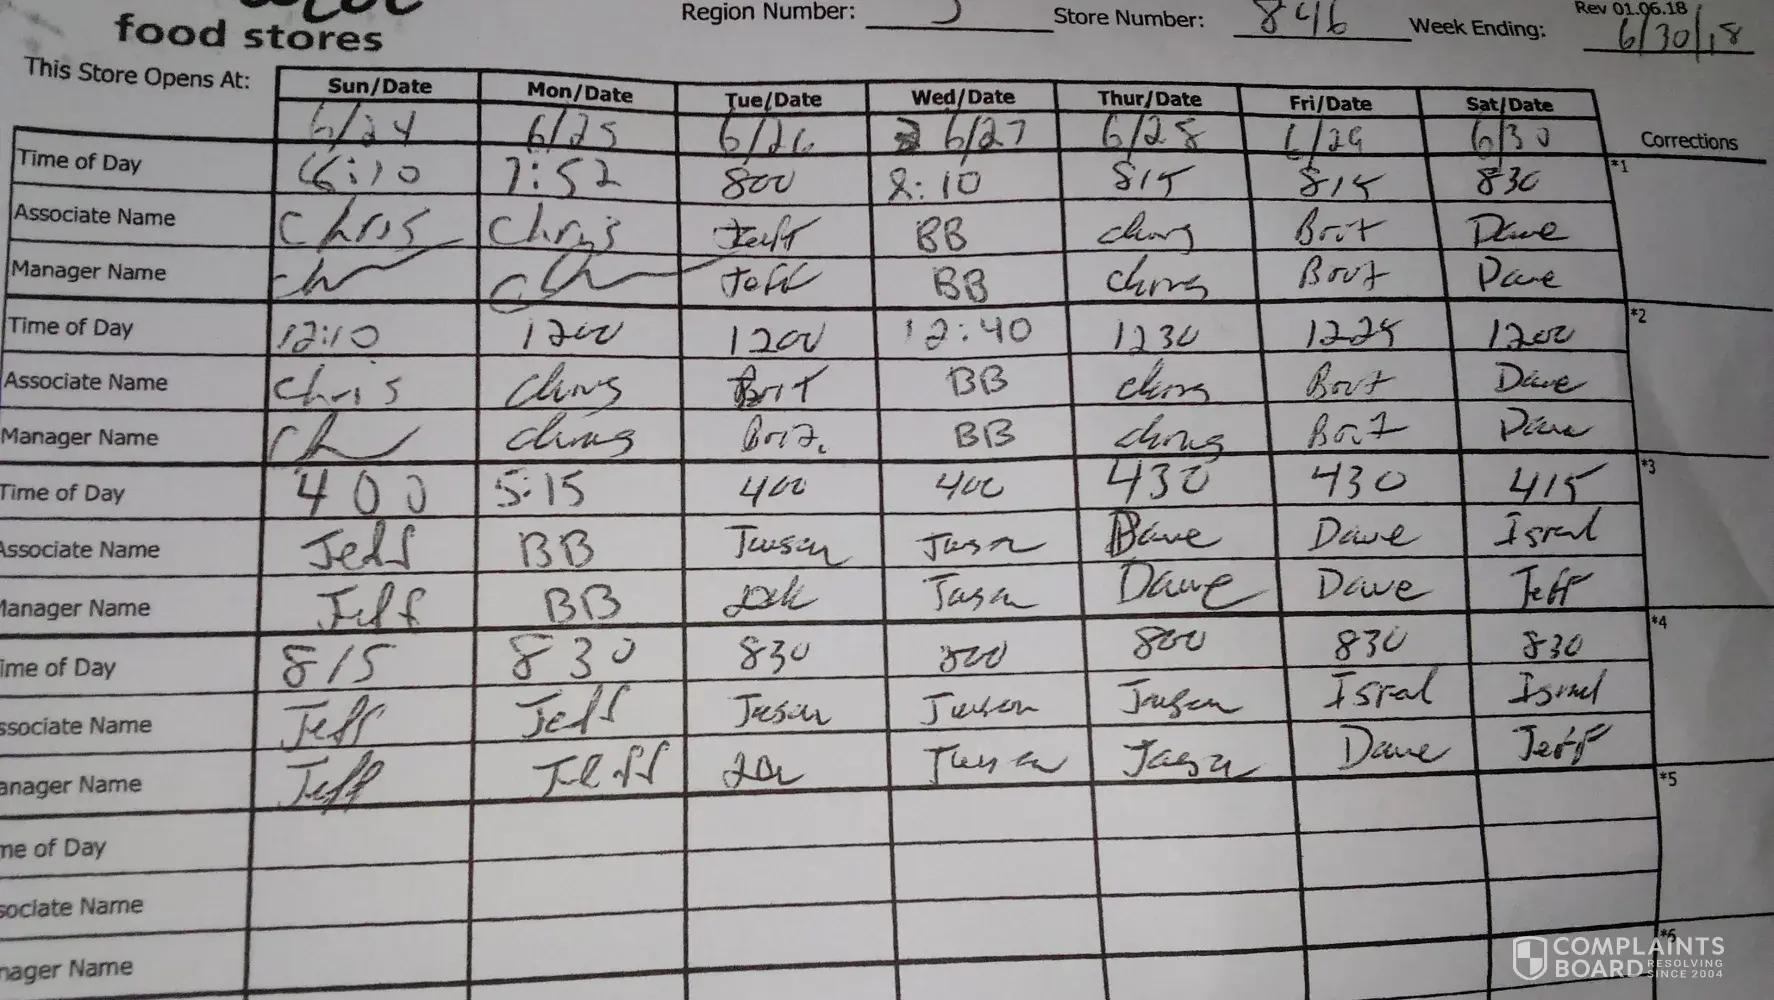 food stores
Region Number: Store Number: 846 Week Ending: 6/30/18
Rev 01.06.18
This Store Opens At: Sun/Date Mon/Date Tue/Date Wed/Date Thur/Date Fri/Date Sat/Date
6/24 6/25 6/26 6/27 6/28 6/29 6/30 Corrections
Time of Day 6:10 7:52 800 8:10 815 815 830 *1
Associate Name Chris Chris Jeff BB Chris Brit Dave
Manager Name Ch Ch Jeff BB Chris Brit Dave
Time of Day 12:10 1200 1200 12:40 1230 1225 1200 *2
Associate Name Chris Chris Brit BB Chris Brit Dave
Manager Name Ch Chris Brit BB Chris Brit Dave
Time of Day 400 5:15 400 400 430 430 415 *3
Associate Name Jeff BB Jason Jason Dave Dave Isral
Manager Name Jeff BB Jason Dave Dave Jeff
Time of Day 815 830 830 800 800 830 830 *4
ssociate Name Jeff Jeff Jason Jason Jason Isral Isral
anager Name Jeff Jeff Jason Jason Dave Jeff
me of Day *5
sociate Name
nager Name *6
COMPLAINTS
BOARD RESOLVING
SINCE 2004